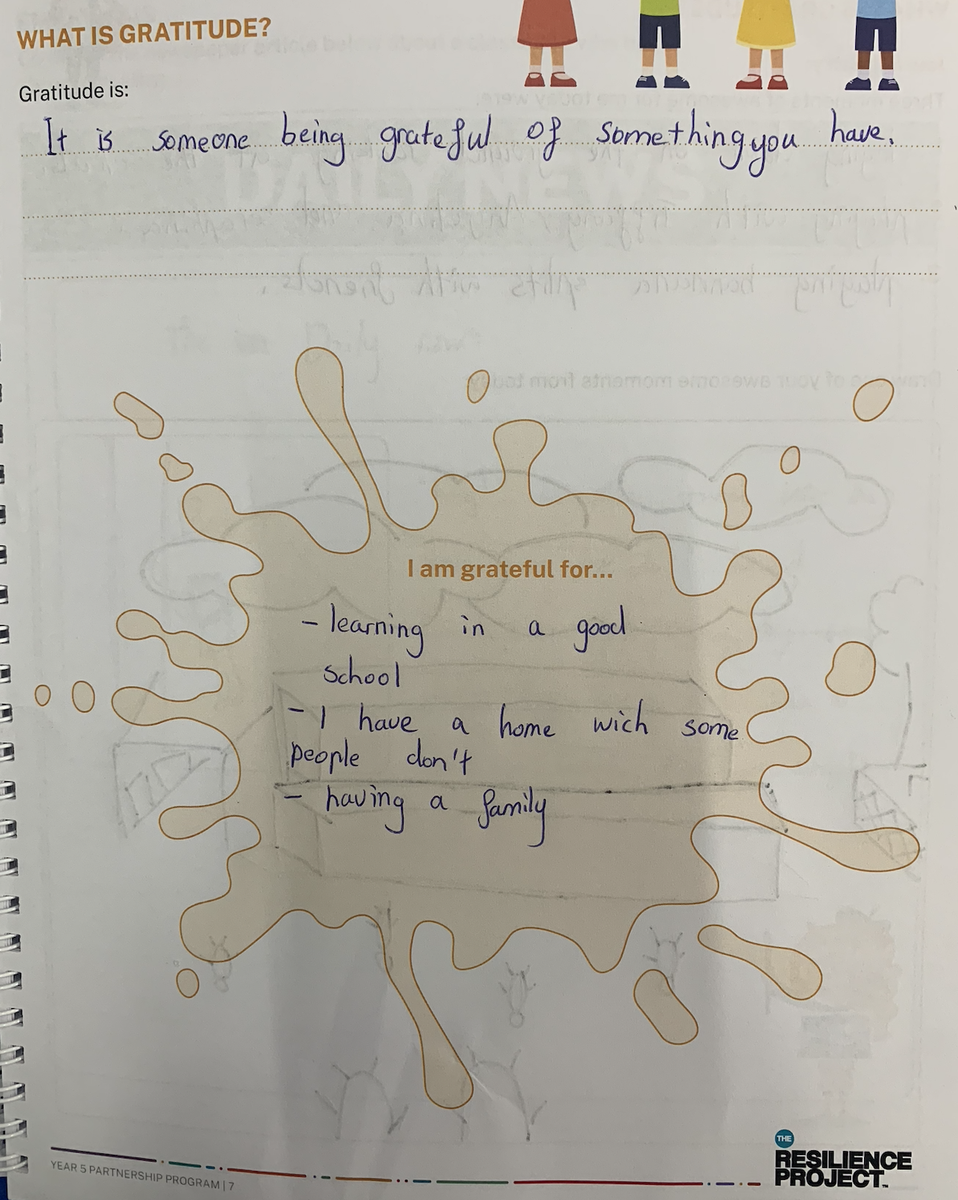 WHAT IS GRATITUDE?
Gratitude is:
It is someone being grateful of something you have.
I am grateful for...
- learning in a good
school
- I have a home wich some
people don't
- having a family
YEAR 5 PARTNERSHIP PROGRAM | 7
THE
RESILIENCE
PROJECT™